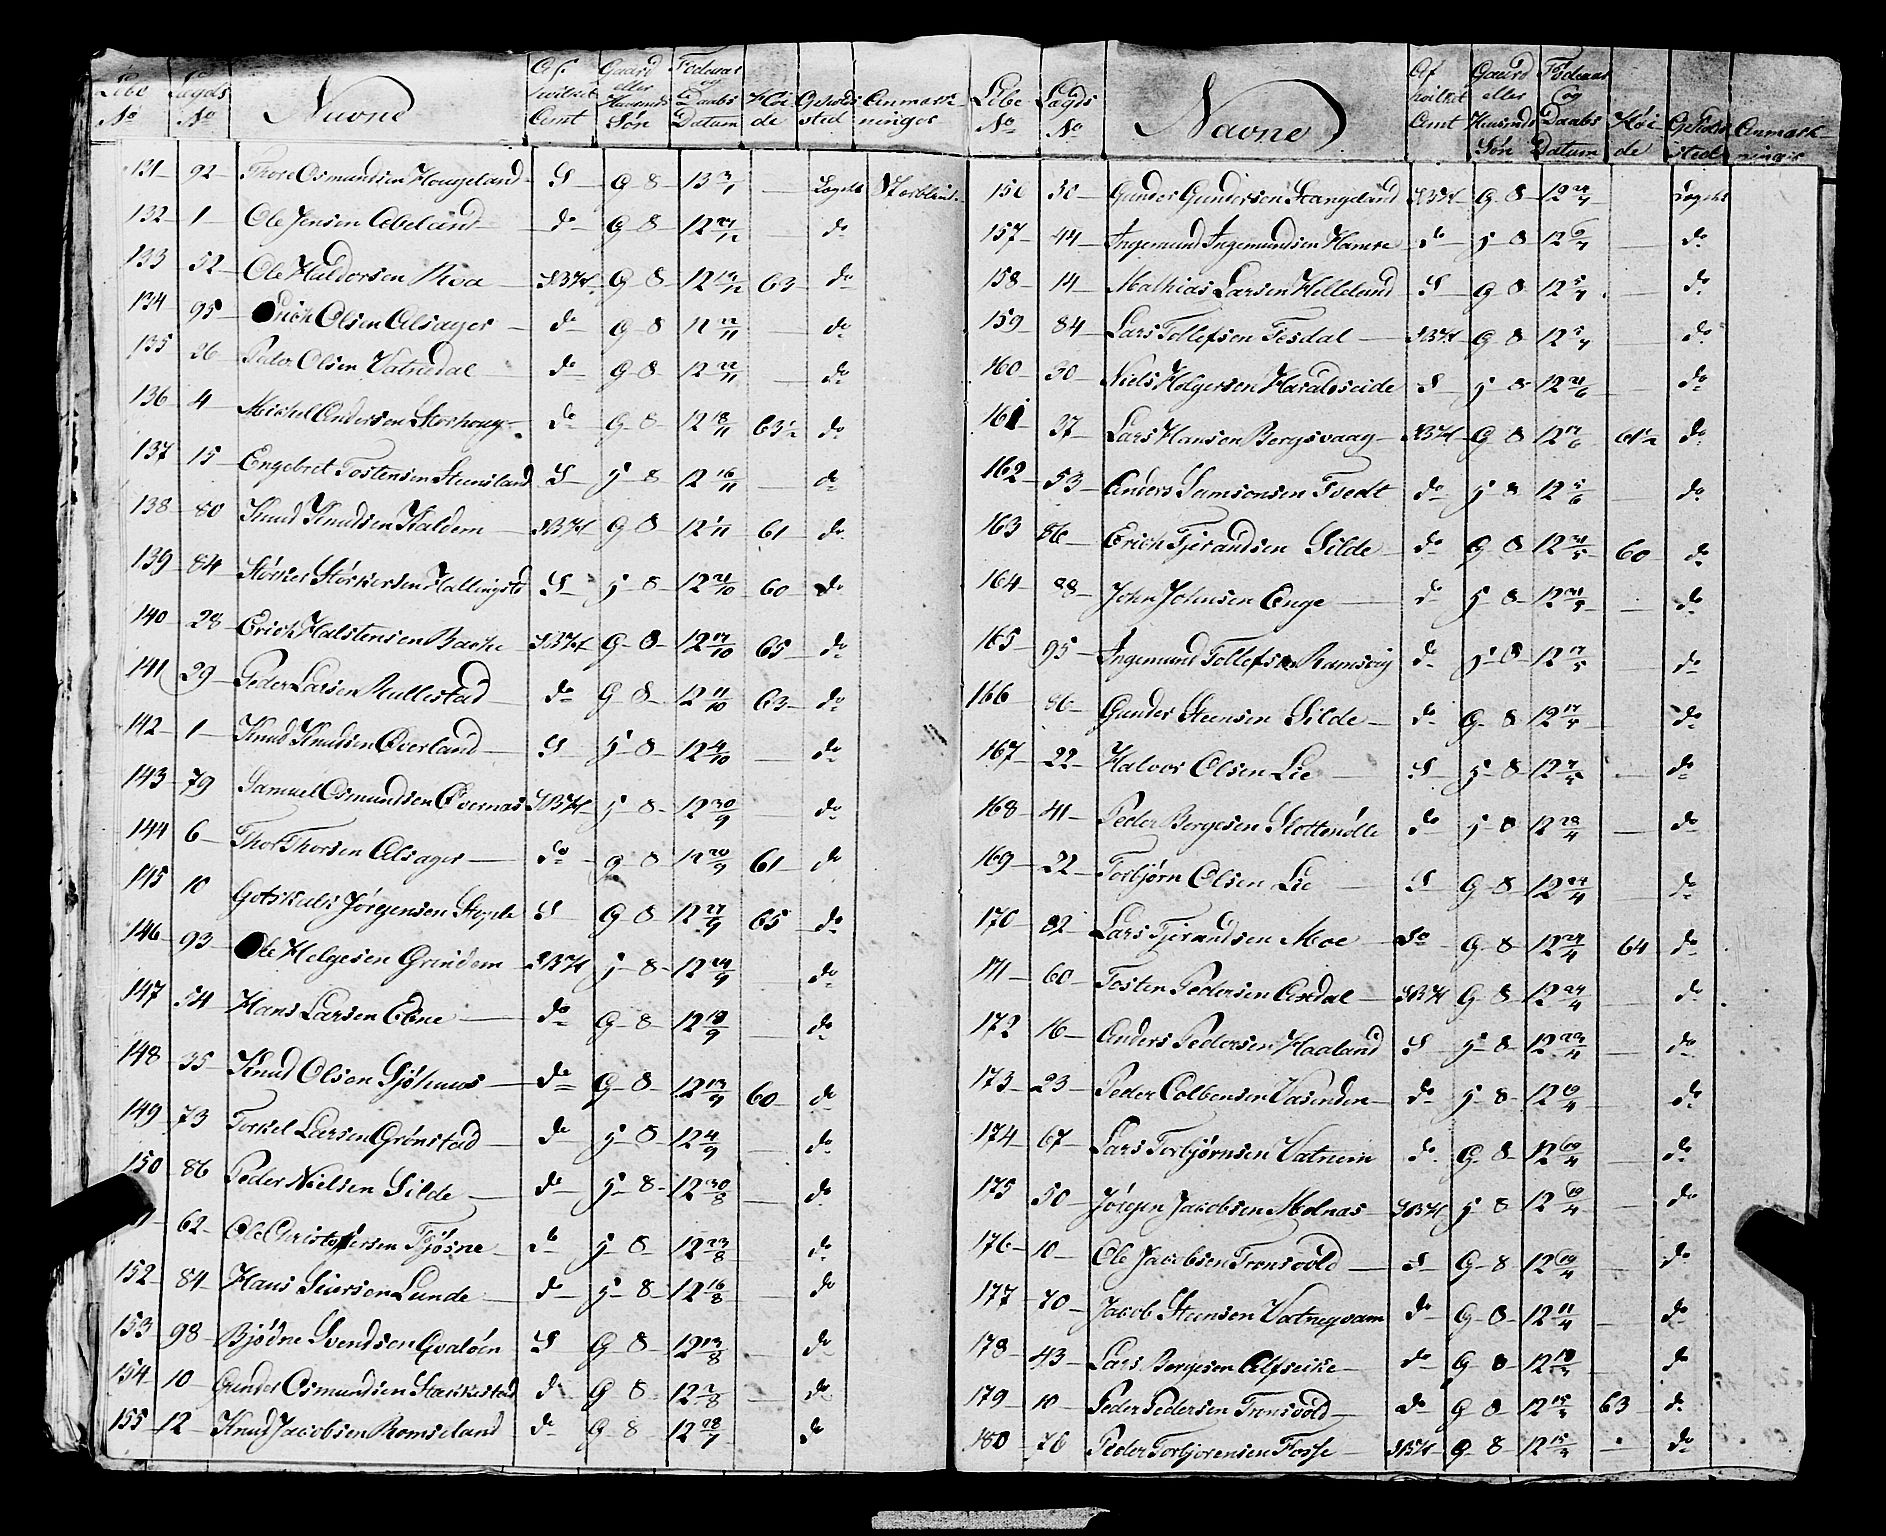 Løbe No Lægds No Navne Af hvilket Amt Gaard eller Huusmds Søn Fødsels og Daabs Datum Høide Opholdssted Anmærkninger
131 92 Thore Osmundsen Hougeland S G 8 13 3/1 — Lægdet
132 1 Ole Jensen Abeland do G 8 12 27/12 — do
133 52 Ole Haldorsen Roa SBH G 8 12 19/12 63 do
134 95 Erich Olsen Alsager do G 8 12 22/11 do
135 26 Peder Olsen Vatnedal do G 8 12 22/11 — do
136 4 Michel Andersen Storhoug do G 8 12 18/11 63½ do
137 15 Engebret Tostensen Steensland S H 8 12 16/11 — do
138 80 Knud Knudsen Haldem SBH G 8 12 1/11 61 do
139 84 Størker Størkersen Hallingstd S H 8 12 21/10 60 do
140 28 Erich Halstensen Bache SBH G 8 12 17/10 65 do
141 29 Peder Larsen Rullestad do G 8 12 11/10 63 do
142 1 Knud Knudsen Øverland S H 8 12 4/10 — do
143 79 Samuel Osmundsen Øvernas SBH H 8 12 30/9 — do
144 6 Thor Thorsen Alsager do G 8 12 29/9 61 do
145 10 Gotskalk Jørgensen Stople S G 8 12 27/9 65 do
146 93 Ole Helgesen Grindem SBH H 8 12 24/9 do
147 54 Hans Larsen Ebne do G 8 12 18/9 — do
148 35 Knud Olsen do G 8 12 13/9 60 do
149 73 Torkel Larsen Grønstad do H 8 12 4/9 do
150 86 Peder Nielsen Silde do H 8 12 30/8 — do
62 Ole Christofersen Tjøsne do H 8 12 23/8 do
152 84 Hans Siversen Lunde do H 8 12 16/8 do
153 98 Bjødne Svendsen Qvaløen S G 8 12 13/8 do
154 10 Gunder Osmundsen Starkestad do G 8 12 2/8 do
155 12 Knud Jacobsen Romseland do G 8 12 28/7 do
Løbe No Lægds No Navne Af hvilket Amt Gaard eller Huusmds Søn Fødsels og Daabs Datum Høide Opholdssted Anmærkninger
156 30 Gunder Gundersen Stangeland SBH G 8 12 28/7 Lægdet
157 44 Ingemund Ingemundsen Hamre do H 8 12 6/7 — do
158 14 Mathias Larsen Helleland S G 8 12 5/7 — do
159 84 Lars Tollefsen Tesdal SBH G 8 12 5/7 do
160 30 Niels Holgersen Haraldseide S H 8 12 21/6 do
161 37 Lars Hansen Bergsvaag SBH G 8 12 17/6 61½ do
162 53 Anders Samsonsen Tvedt do H 8 12 5/6 do
163 86 Erich Tjerandsen Silde do G 8 12 31/5 60 do
164 28 John Johnsen Enge do H 8 12 31/5 do
165 95 Ingemund Tollefsen Ramsvig do H 8 12 17/5 do
166 86 Gunder Steensen Silde do G 8 12 17/5 — do
167 22 Halvor Olsen Lie S H 8 12 7/5 do
168 41 Peder Bergesen do H 8 12 28/4 — do
169 22 Torbjørn Olsen Lie S G 8 12 24/4 do
170 82 Lars Tjerandsen Moe do G 8 12 24/4 64 do
171 60 Tosten Pedersen Axdal SBH G 8 12 24/4 do
172 16 Anders Pedersen Haaland S H 8 12 23/4 — do
173 23 Peder Colbensen Vasenden do H 8 12 19/4 do
174 67 Lars Torbjørnsen Vatnem do G 8 12 19/4 — do
175 50 Jørgen Jacobsen Molnas SBH H 8 12 19/4 do
176 10 Ole Jacobsen Tronsvold S G 8 12 19/4 do
177 70 Jacob Steensen Vatnegvam do G 8 12 11/4 do
178 43 Lars Bergesen Alfseike do G 8 12 do
179 10 Peder Pedersen Tronsvold do G 8 12 63 do
180 76 Peder Torbjørensen Fosse SBH G 8 12 do